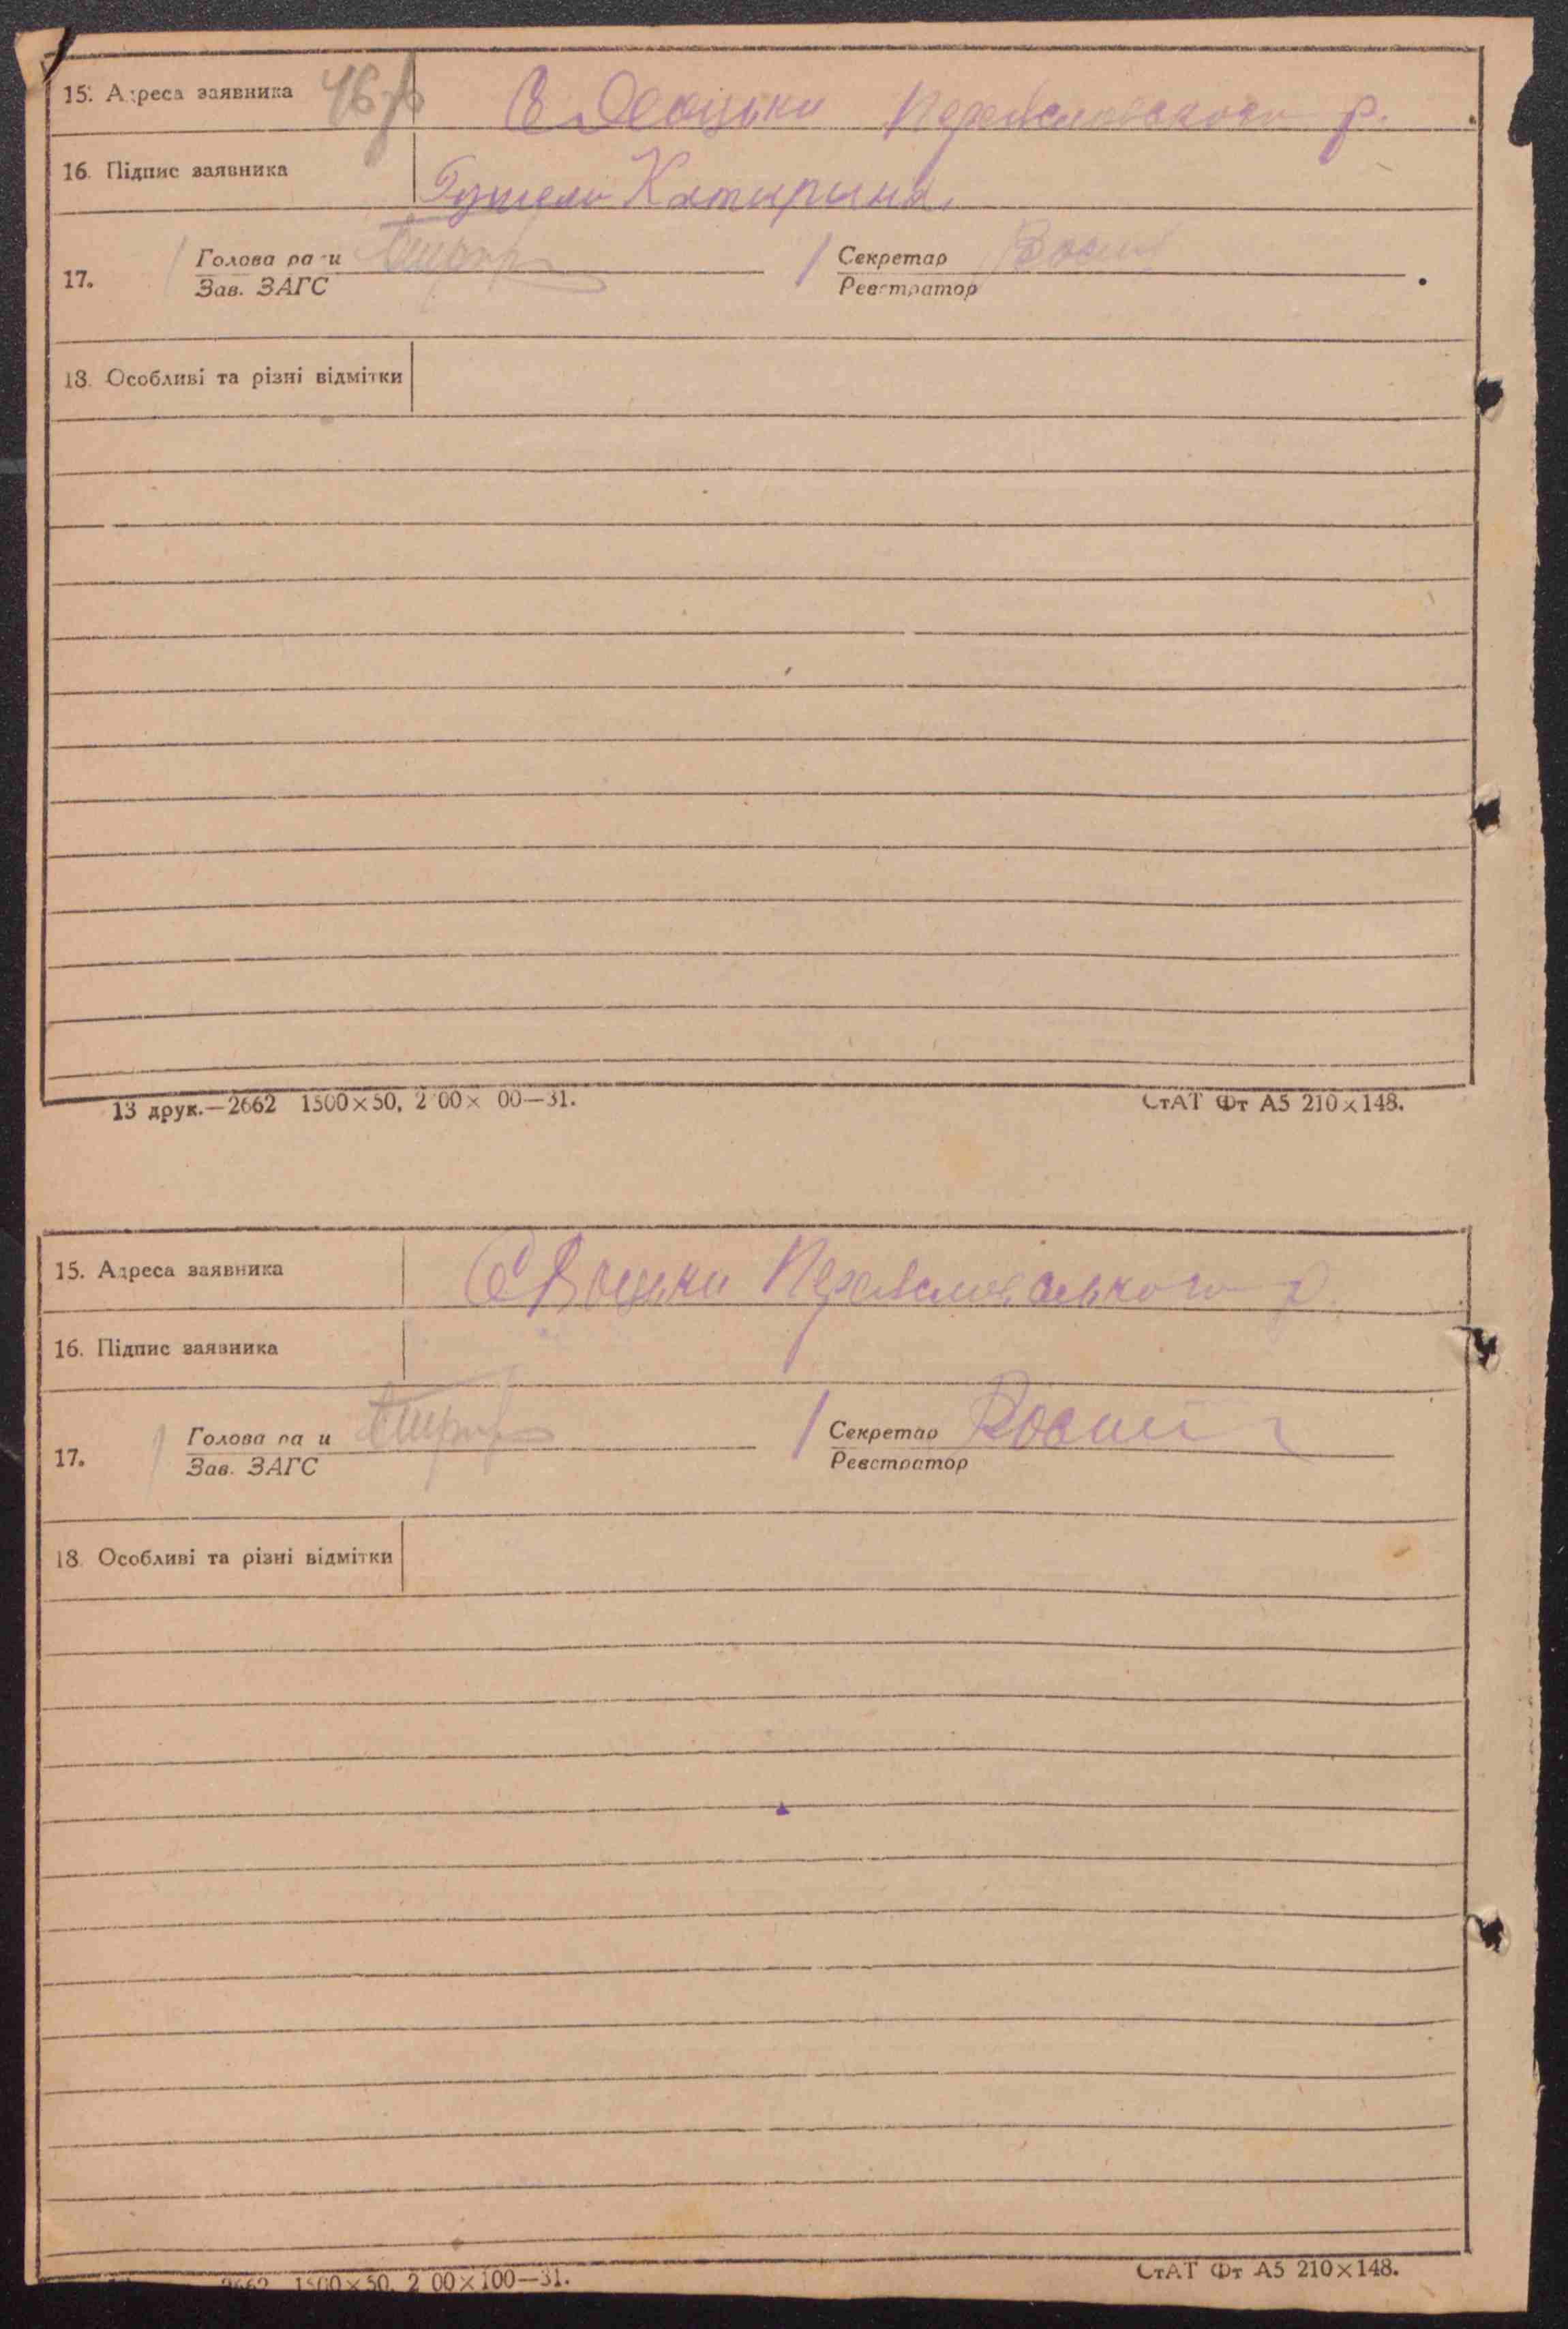 15. Адреса заявника 46 Переяславского р.
16. Підпис заявника Катирина.
17. Голова ра и Секретар
Зав. ЗАГС Реєстратор
18. Особливі та різні відмітки
13 друк.—2662 1500×50, 2 00× 00—31. СтАТ Фт А5 210×148.
15. Адреса заявника Переяславського р.
16. Підпис заявника
17. Голова ра и Секретар
Зав. ЗАГС Реєстратор
18. Особливі та різні відмітки
2662 1500×50, 2 00×100—31. СтАТ Фт А5 210×148.